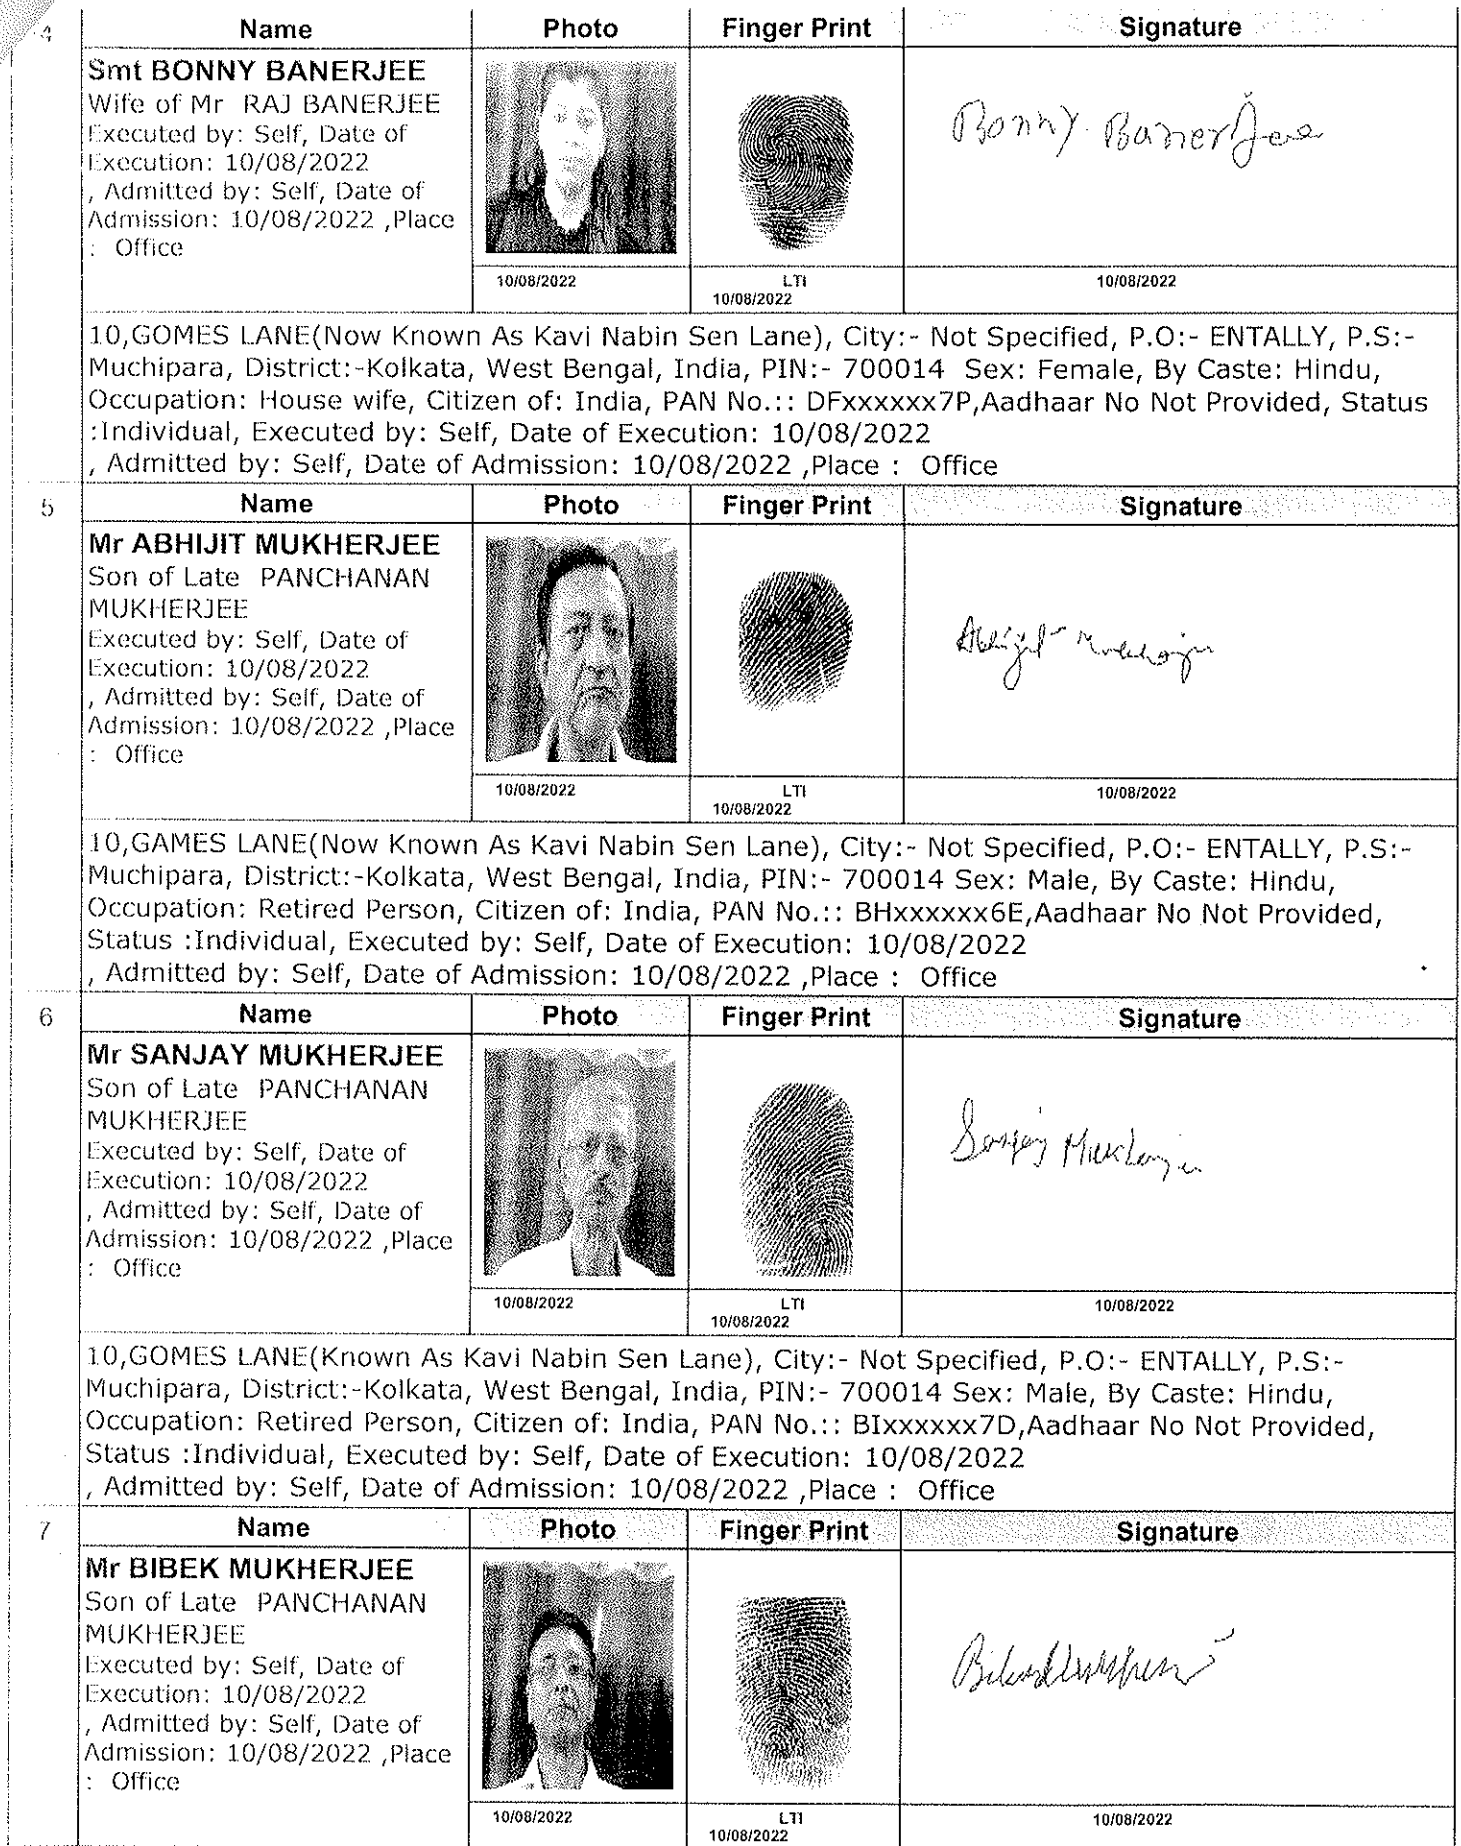 4 Name Photo Finger Print Signature
Smt BONNY BANERJEE
Wife of Mr RAJ BANERJEE
Executed by: Self, Date of
Execution: 10/08/2022
, Admitted by: Self, Date of
Admission: 10/08/2022 ,Place
: Office
Bonny Banerjee
10/08/2022 LTI 10/08/2022
10/08/2022
10,GOMES LANE(Now Known As Kavi Nabin Sen Lane), City:- Not Specified, P.O:- ENTALLY, P.S:-
Muchipara, District:-Kolkata, West Bengal, India, PIN:- 700014 Sex: Female, By Caste: Hindu,
Occupation: House wife, Citizen of: India, PAN No.:: DFxxxxxx7P,Aadhaar No Not Provided, Status
:Individual, Executed by: Self, Date of Execution: 10/08/2022
, Admitted by: Self, Date of Admission: 10/08/2022 ,Place : Office
5 Name Photo Finger Print Signature
Mr ABHIJIT MUKHERJEE
Son of Late PANCHANAN
MUKHERJEE
Executed by: Self, Date of
Execution: 10/08/2022
, Admitted by: Self, Date of
Admission: 10/08/2022 ,Place
: Office
Abhijit Mukherjee
10/08/2022 LTI 10/08/2022
10/08/2022
10,GAMES LANE(Now Known As Kavi Nabin Sen Lane), City:- Not Specified, P.O:- ENTALLY, P.S:-
Muchipara, District:-Kolkata, West Bengal, India, PIN:- 700014 Sex: Male, By Caste: Hindu,
Occupation: Retired Person, Citizen of: India, PAN No.:: BHxxxxxx6E,Aadhaar No Not Provided,
Status :Individual, Executed by: Self, Date of Execution: 10/08/2022
, Admitted by: Self, Date of Admission: 10/08/2022 ,Place : Office
6 Name Photo Finger Print Signature
Mr SANJAY MUKHERJEE
Son of Late PANCHANAN
MUKHERJEE
Executed by: Self, Date of
Execution: 10/08/2022
, Admitted by: Self, Date of
Admission: 10/08/2022 ,Place
: Office
Sanjay Mukherjee
10/08/2022 LTI 10/08/2022
10/08/2022
10,GOMES LANE(Known As Kavi Nabin Sen Lane), City:- Not Specified, P.O:- ENTALLY, P.S:-
Muchipara, District:-Kolkata, West Bengal, India, PIN:- 700014 Sex: Male, By Caste: Hindu,
Occupation: Retired Person, Citizen of: India, PAN No.:: BIxxxxxx7D,Aadhaar No Not Provided,
Status :Individual, Executed by: Self, Date of Execution: 10/08/2022
, Admitted by: Self, Date of Admission: 10/08/2022 ,Place : Office
7 Name Photo Finger Print Signature
Mr BIBEK MUKHERJEE
Son of Late PANCHANAN
MUKHERJEE
Executed by: Self, Date of
Execution: 10/08/2022
, Admitted by: Self, Date of
Admission: 10/08/2022 ,Place
: Office
10/08/2022 LTI 10/08/2022
10/08/2022